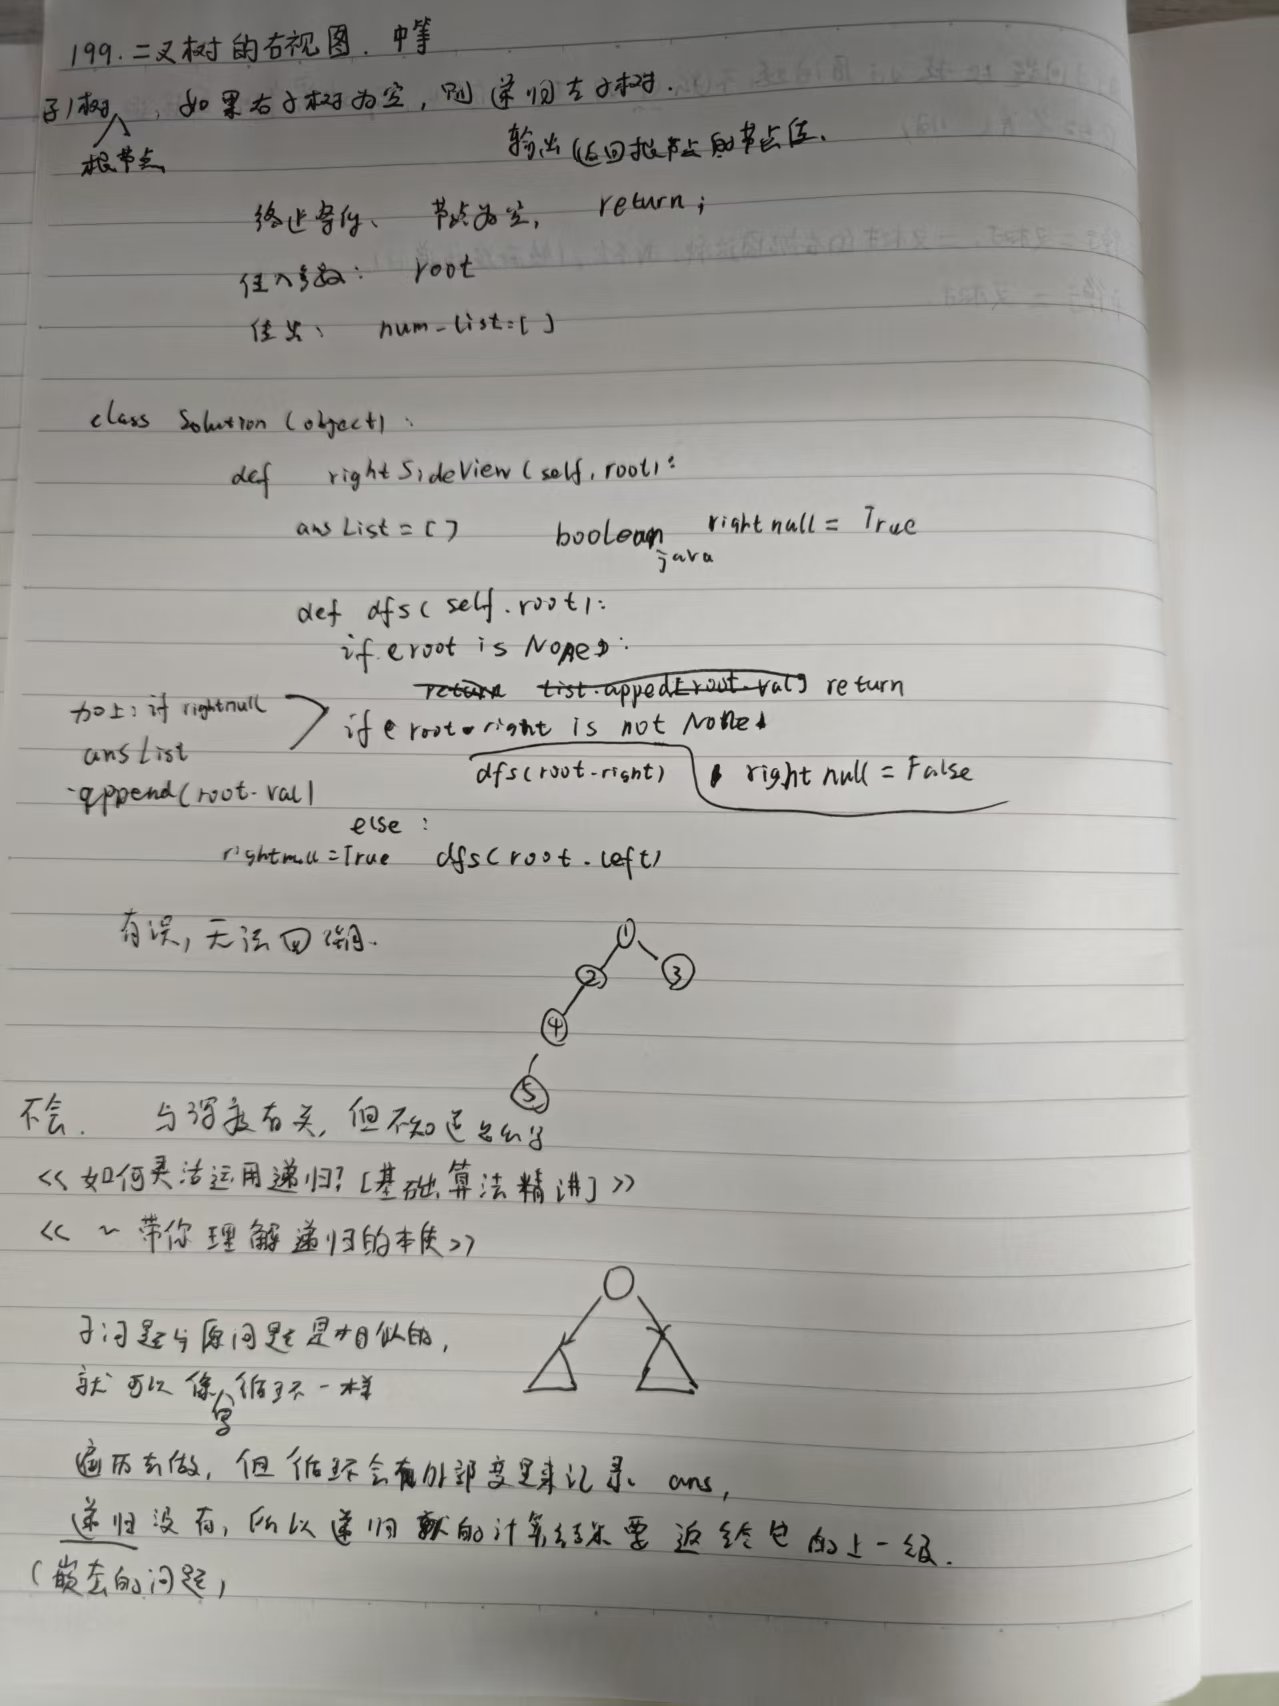 199.二叉树的右视图. 中等
子树, 如果右子树为空, 则递归左子树.
根节点
输出(返回根节点的节点值.
终止条件、 节点为空, return;
传入参数: root
传出: num-list=[]
class Solution (object):
def rightSideView (self, root):
ansList = [] boolean rightnull = True
java
def dfs( self. root):
if (root is None):
return list.apped[root.val] return
加上: if rightnull
if (root.right is not None)
ansList
dfs(root.right) rightnull = False
.append(root.val)
else:
rightnull = True dfs(root.left)
有误, 无法回溯.
1
2
3
4
5
不会. 与深度有关, 但不知道怎么写
<<如何灵活运用递归?[基础算法精讲]>>
<< ~ 带你理解递归的本质>>
子问题与原问题是相似的,
就可以像写循环一样
遍历去做, 但循环会有外部变量来记录 ans,
递归没有, 所以递归的计算结果要返给它的上一级.
(嵌套的问题)